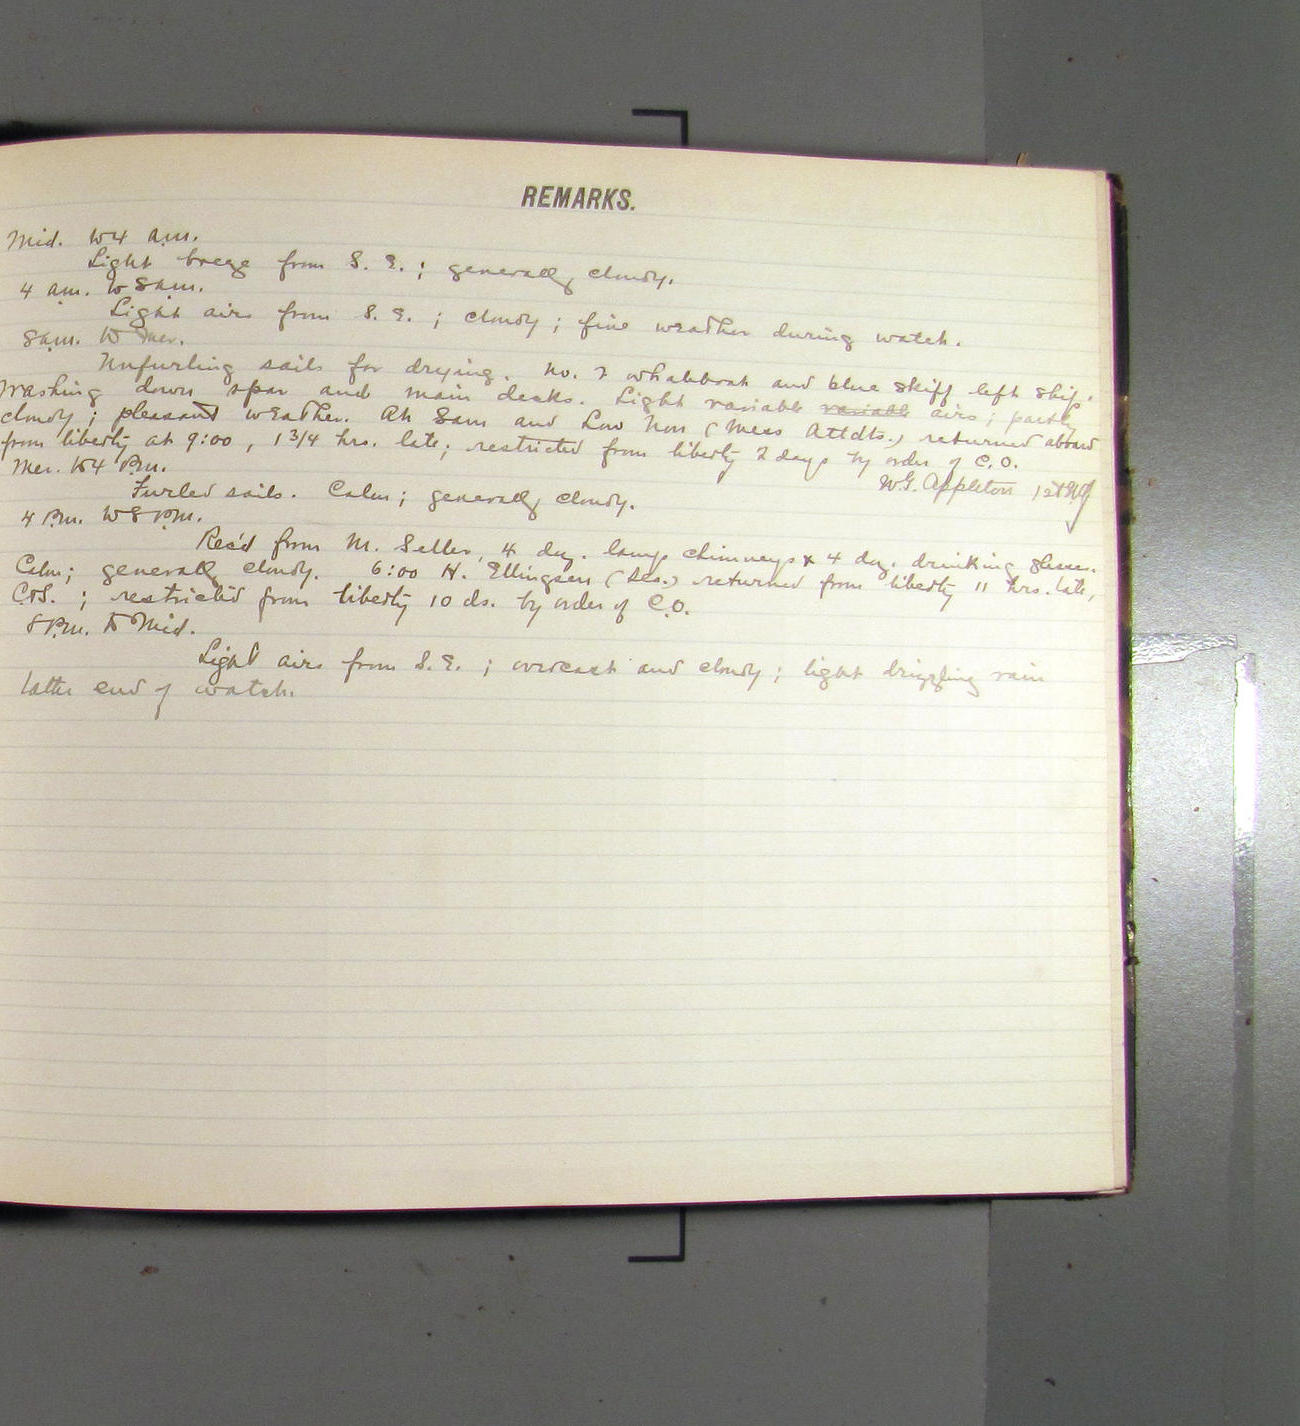 REMARKS.
Mid. to 4 a.m.
Light breeze from S. E. ; generally cloudy.
4 a.m. to 8 a.m.
Light airs from S. E. ; cloudy ; fine weather during watch.
8 a.m. to Mer.
Unfurling sails for drying. No. 2 whaleboat and blue skiff left ship.
Washing down spar and main decks. Light variable variable airs ; partly
cloudy ; pleasant weather. Ah Sam and Low Non (Mess Attdts.) returned aboard
from liberty at 9:00 , 1 3/4 hrs. late ; restricted from liberty 2 days by order of C.O.
W.G. Appleton
Mer. to 4 P.m.
Furled sails. Calm ; generally cloudy.
4 P.m. to 8 P.m.
Rec'd from M. Seller, 4 doz. lamp chimneys & 4 doz. drinking glasses.
Calm ; generally cloudy. 6:00 H. Ellingsen (Sea.) returned from liberty 11 hrs. late,
; restricted from liberty 10 ds. by order of C.O.
8 P.m. to Mid.
Light airs from S. E. ; overcast and cloudy ; light drizzling rain
latter end of watch.